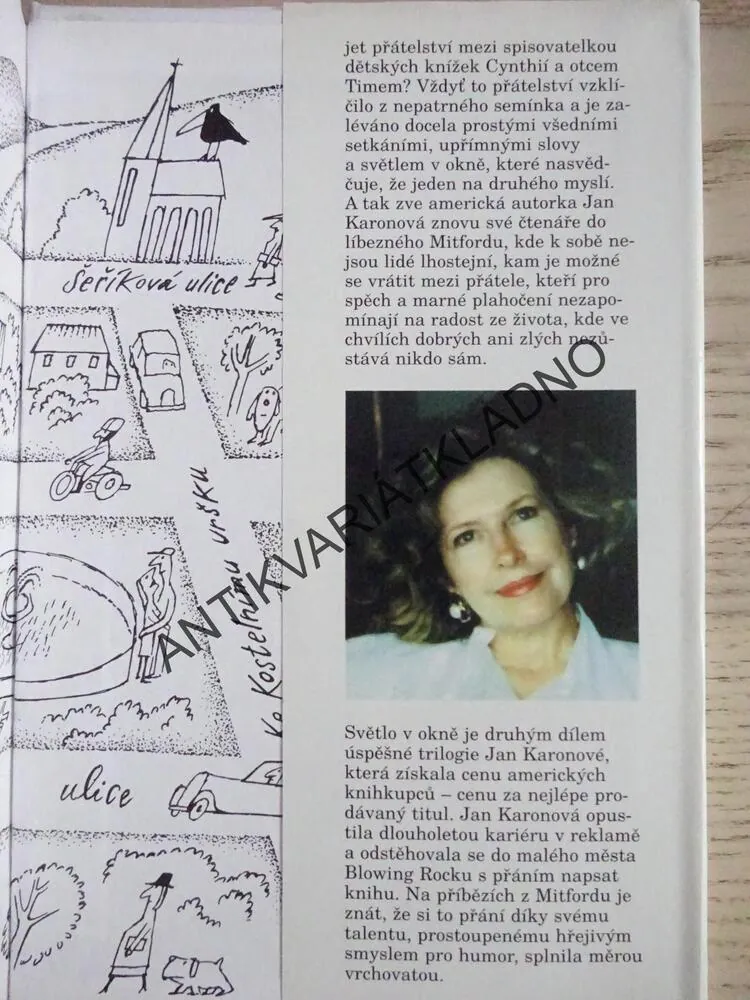 jet přátelství mezi spisovatelkou
dětských knížek Cynthií a otcem
Timem? Vždyť to přátelství vzklí-
čilo z nepatrného semínka a je za-
léváno docela prostými všedními
setkáními, upřímnými slovy
a světlem v okně, které nasvěd-
čuje, že jeden na druhého myslí.
A tak zve americká autorka Jan
Karonová znovu své čtenáře do
líbezného Mitfordu, kde k sobě ne-
jsou lidé lhostejní, kam je možné
se vrátit mezi přátele, kteří pro
spěch a marné plahočení nezapo-
mínají na radost ze života, kde ve
chvílích dobrých ani zlých nezů-
stává nikdo sám.
Světlo v okně je druhým dílem
úspěšné trilogie Jan Karonové,
která získala cenu amerických
knihkupců – cenu za nejlépe pro-
dávaný titul. Jan Karonová opus-
tila dlouholetou kariéru v reklamě
a odstěhovala se do malého města
Blowing Rocku s přáním napsat
knihu. Na příbězích z Mitfordu je
znát, že si to přání díky svému
talentu, prostoupenému hřejivým
smyslem pro humor, splnila měrou
vrchovatou.
Šeříková ulice
Ke Kostelnímu vršku
ulice
ANTIKVARIÁTKLADNO